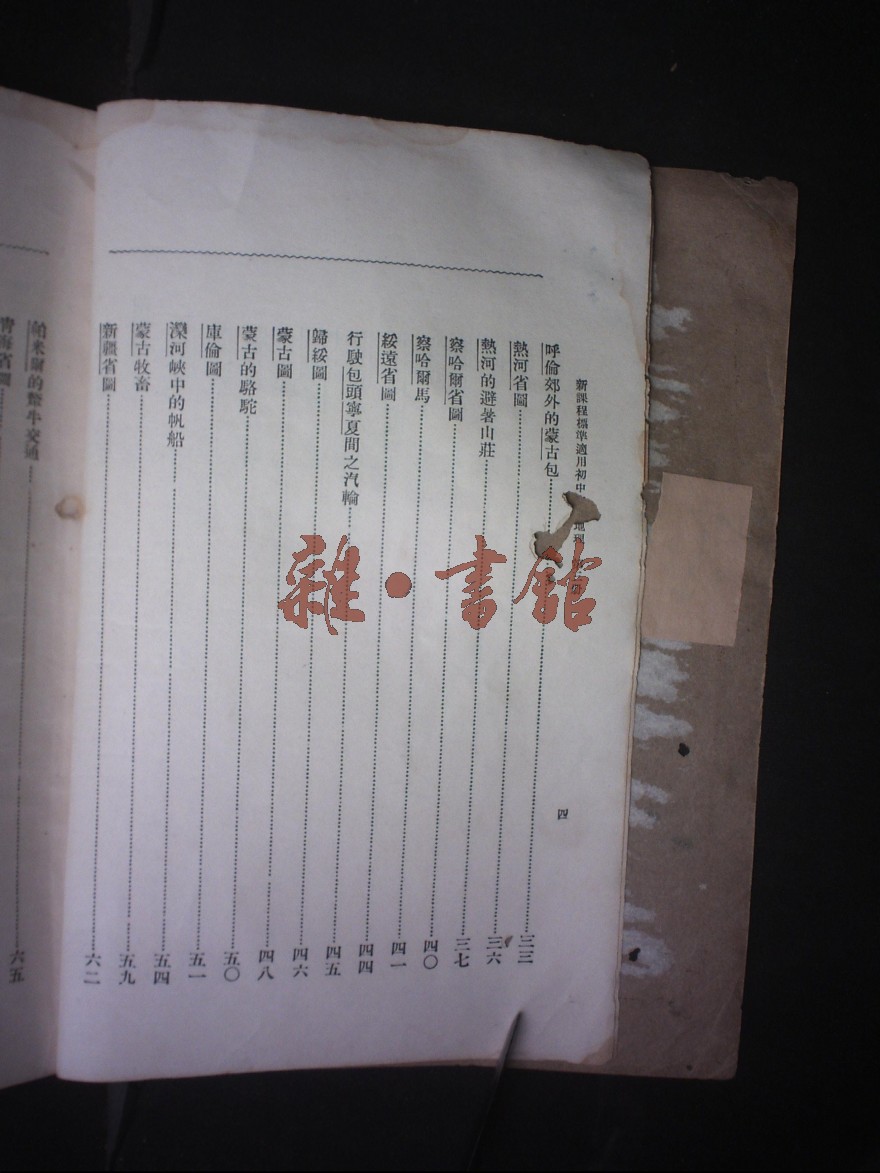 新課程標準適用初中
地理
冊
四
呼倫郊外的蒙古包……三三
熱河省圖……三六
熱河的避暑山莊……三七
察哈爾省圖……四〇
察哈爾馬……四一
綏遠省圖……四四
行駛包頭寧夏間之汽輪……四五
歸綏圖……四六
蒙古圖……四八
蒙古的駱駝……五〇
庫倫圖……五一
灤河峽中的帆船……五四
蒙古牧畜……五九
新疆省圖……六二
帕米爾的犛牛交通……六五
青海省圖
雜·書館